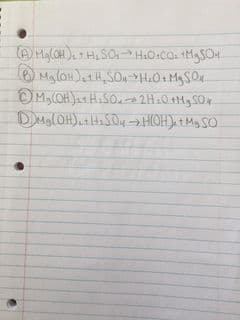 (A) Mg(OH)₂ + H₂SO₄ → H₂O + CO₂ + MgSO₄
(B) Mg(OH)₂ + H₂SO₄ → H₂O + MgSO₄
(C) Mg(OH)₂ + H₂SO₄ → 2H₂O + MgSO₄
(D) Mg(OH)₂ + H₂SO₄ → H(OH)₂ + MgSO